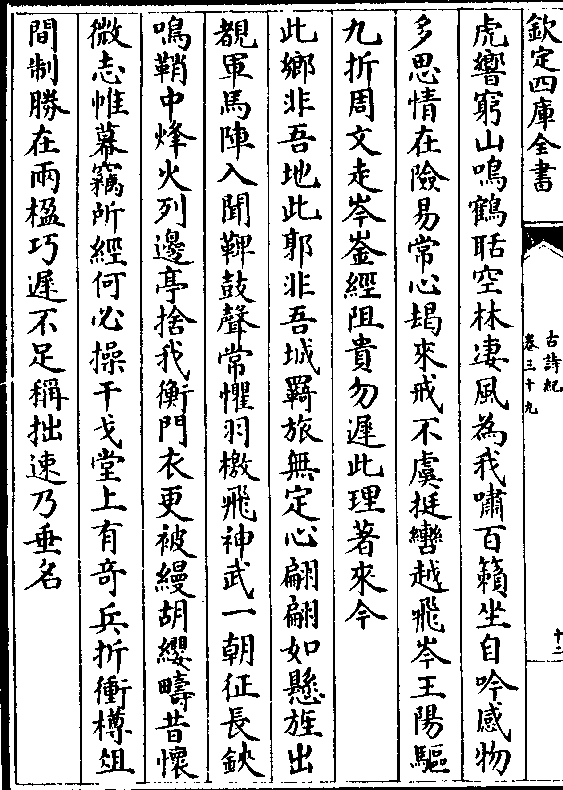 欽定四庫全書
古詩紀
卷三十九
十二
虎響窮山鳴鶴聒空林凄風為我嘯百籟坐自吟感物
多思情在險易常心朅來戒不虞挺轡越飛岑王陽驅
九折周文走岑崟經阻貴勿遲此理著來今
此鄉非吾地此郭非吾城羇旅無定心翩翩如懸旌出
覩軍馬陣入聞鞞鼓聲常懼羽檄飛神武一朝征長鋏
鳴鞘中烽火列邊亭捨我衡門衣更被縵胡纓疇昔懷
微志帷幕竊所經何必操干戈堂上有奇兵折衝樽俎
間制勝在兩楹巧遲不足稱拙速乃垂名